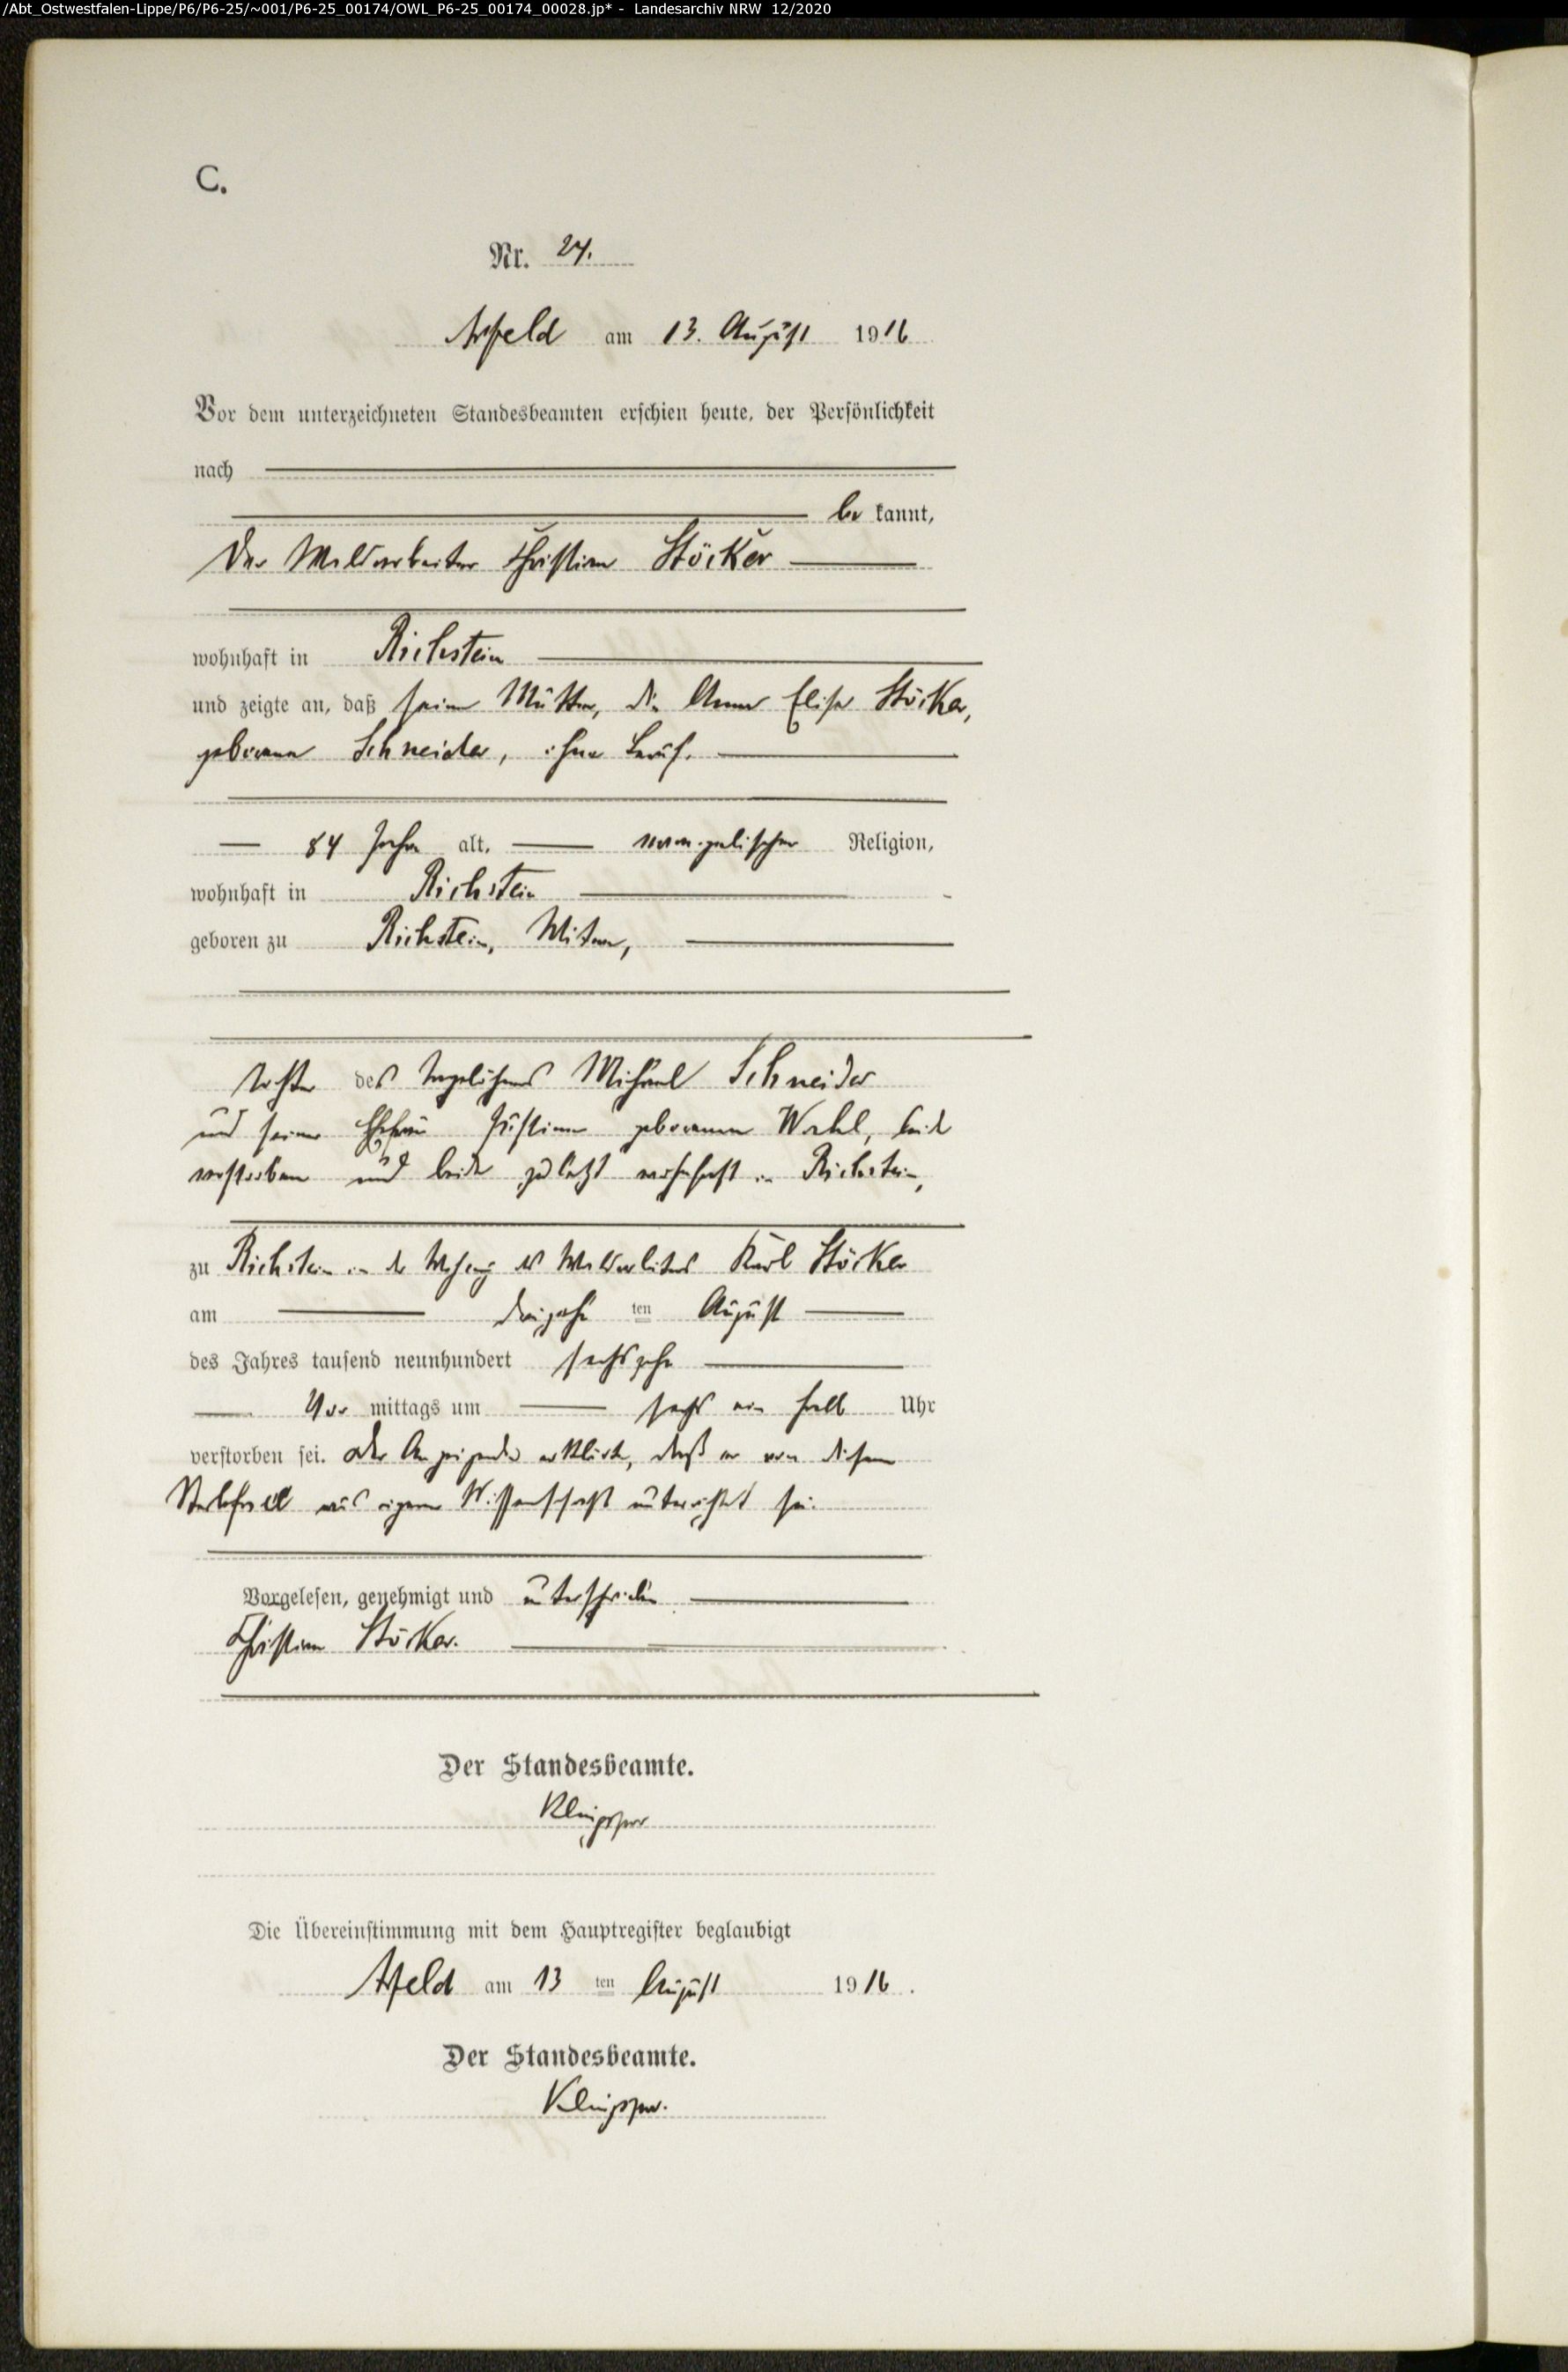 /Abt_Ostwestfalen-Lippe/P6/P6-25/~001/P6-25_00174/OWL_P6-25_00174_00028.jp* - Landesarchiv NRW 12/2020
C.
Nr. 24.
Arfeld am 13. August 1916
Vor dem unterzeichneten Standesbeamten erschien heute, der Persönlichkeit
nach
be kannt,
Der Waldarbeiter Christian Stöcker
wohnhaft in Richstein
und zeigte an, daß seine Mutter, die Anna Elise Stöcker,
geborene Schneider, ohne Beruf.
84 Jahre alt, evangelischer Religion,
wohnhaft in Richstein
geboren zu Richstein, Witwe,
Tochter des Tagelöhners Michael Schneider
und seiner Ehefrau Justine geborenen Wahl, beide
verstorben und beide zuletzt wohnhaft in Richstein,
zu Richstein in der Wohnung des Waldarbeiters Karl Stöcker
am dreizehn ten August
des Jahres tausend neunhundert sechszehn
Vor mittags um sechs ein halb Uhr
verstorben sei. Der Anzeigende erklärte, daß er von diesem
Sterbefall aus eigener Wissenschaft unterrichtet sei.
Vorgelesen, genehmigt und unterschrieben
Christian Stöcker.
Der Standesbeamte.
Klingspor
Die Übereinstimmung mit dem Hauptregister beglaubigt
Arfeld am 13 ten August 1916.
Der Standesbeamte.
Klingspor.